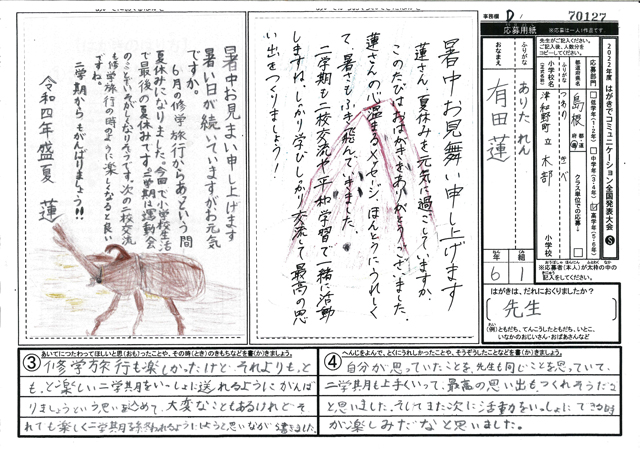 事務欄 D
70127
応募用紙
※応募は一人1作品です
2022年度 はがきでコミュニケーション全国発表大会 S
先生がご記入ください。
ご記入後、人数分を
コピーしてください。
応募部門
低学年(1-2年)
中学年(3-4年)
高学年(5-6年)
都道府県名
島根
クラス単位での応募
ふりがな
小学校名
(正式名称)
津和野町立 木部
小学校
ふりがな
ありた れん
おなまえ
有田 蓮
年
6
組
1
※応募者(本人)が太枠の中の
記入をしてください。
はがきは、だれにおくりましたか?
先生
(例)ともだち、てんこうしたともだち、いとこ、
いなかのおじいさん・おばあさんなど
暑中お見舞い申し上げます
蓮さん、夏休みを元気に過ごしていますか。
このたびはおはがきをありがとうございました。
蓮さんの心温まるメッセージ、ほんとうにうれしく
て、暑さもふき飛んでいきました。
二学期も二校交流や平和学習で一緒に活動
しますね。しっかり学び、しっかり交流して最高の思
い出をつくりましょう!
暑中お見まい申し上げます
暑い日が続いていますがお元気
ですか。
6月の修学旅行からあっという間
に夏休みになりました。今回で小学校生活
で最後の夏休みです。二学期は運動会
も修学旅行の時のように楽しくなると良い
ですね。
二学期からもがんばりましょう!!
令和四年 盛夏 蓮
③ あいてにつたわってほしいと思(おも)ったことや、その時(とき)のきもちなどを書(か)きましょう。
修学旅行も楽しかったけど、それよりもっと
も、ど楽しい二学期をいっしょに送れるようにがんば
りましょうという思いを込めて、大変なこともあるけれどそ
れでも楽しく二学期を終われるようにしようと思いながら書きました。
④ へんじをよんで、とくにうれしかったことや、そうぞうしたことなどを書(か)きましょう。
自分が思っていたことを、先生も同じことを思っていて、
二学期も上手くいって、最高の思い出もつくれそうだな
と思いました。そしてまた次に活動をいっしょにできる時
が楽しみだなと思いました。